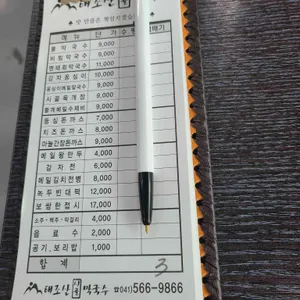 태조산
♠ 맛 만큼은 책임지겠습
메뉴 단가 수
물막국수 9,000
비빔막국수 9,000
명태회막국수 11,000
감자옹심이 10,000
옹심이메밀칼국수 9,000
시골육개장 9,000
황게메밀수제비 9,000
등심돈까스 7,000
치즈돈까스 8,000
마늘간장돈까스 9,000
메밀왕만두 4,000
감자전 6,000
메밀김치전병 8,000
녹두빈대떡 12,000
보쌈한접시 17,000
소주・맥주・막걸리 4,000
음료수 2,000
공기.보리밥 1,000
합계 3
태조산 시골 막국수 ☎041)566-9866